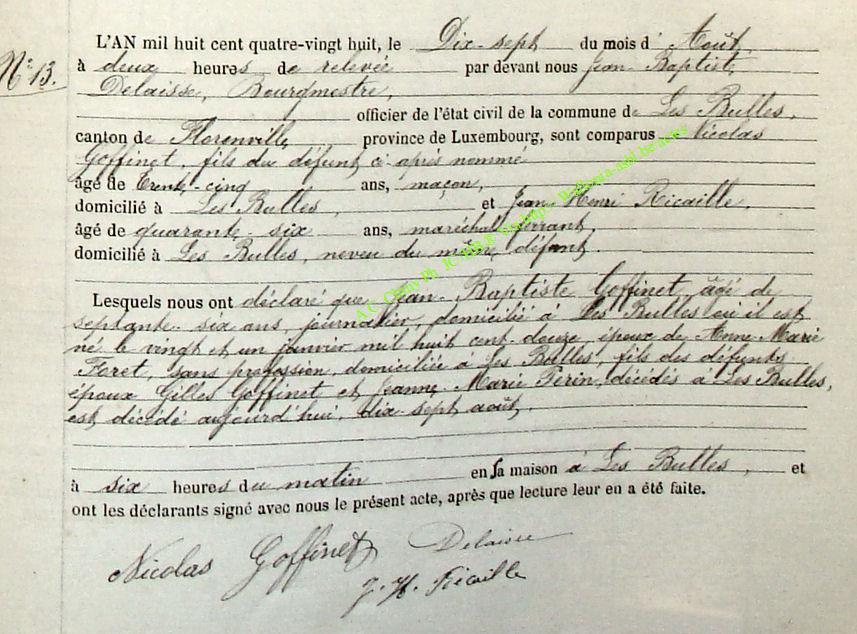 N° 13.
L'AN mil huit cent quatre-vingt huit, le Dix-sept du mois d' Août,
à deux heures de relevée par devant nous Jean-Baptiste
Delaisse, Bourgmestre,
officier de l'état civil de la commune de Les Bulles,
canton de Florenville province de Luxembourg, sont comparus Nicolas
Goffinet, fils du défunt ci-après nommé
âgé de trente-cinq ans, maçon,
domicilié à Les Bulles, et Jean-Henri Ricaille,
âgé de quarante-six ans, maréchal-ferrant,
domicilié à Les Bulles, neveu du même défunt.
Lesquels nous ont déclaré que Jean-Baptiste Goffinet, âgé de
septante-six ans, journalier, domicilié à Les Bulles où il est
né le vingt et un janvier mil huit cent-douze, époux de Anne-Marie
Foret, sans profession, domiciliée à Les Bulles, fils des défunts
époux Gilles Goffinet et Jeanne-Marie Perin, décédés à Les Bulles,
est décédé aujourd'hui, dix-sept août,
à six heures du matin en sa maison à Les Bulles, et
ont les déclarants signé avec nous le présent acte, après que lecture leur en a été faite.
Nicolas Goffinet Delaisse
J. H. Ricaille